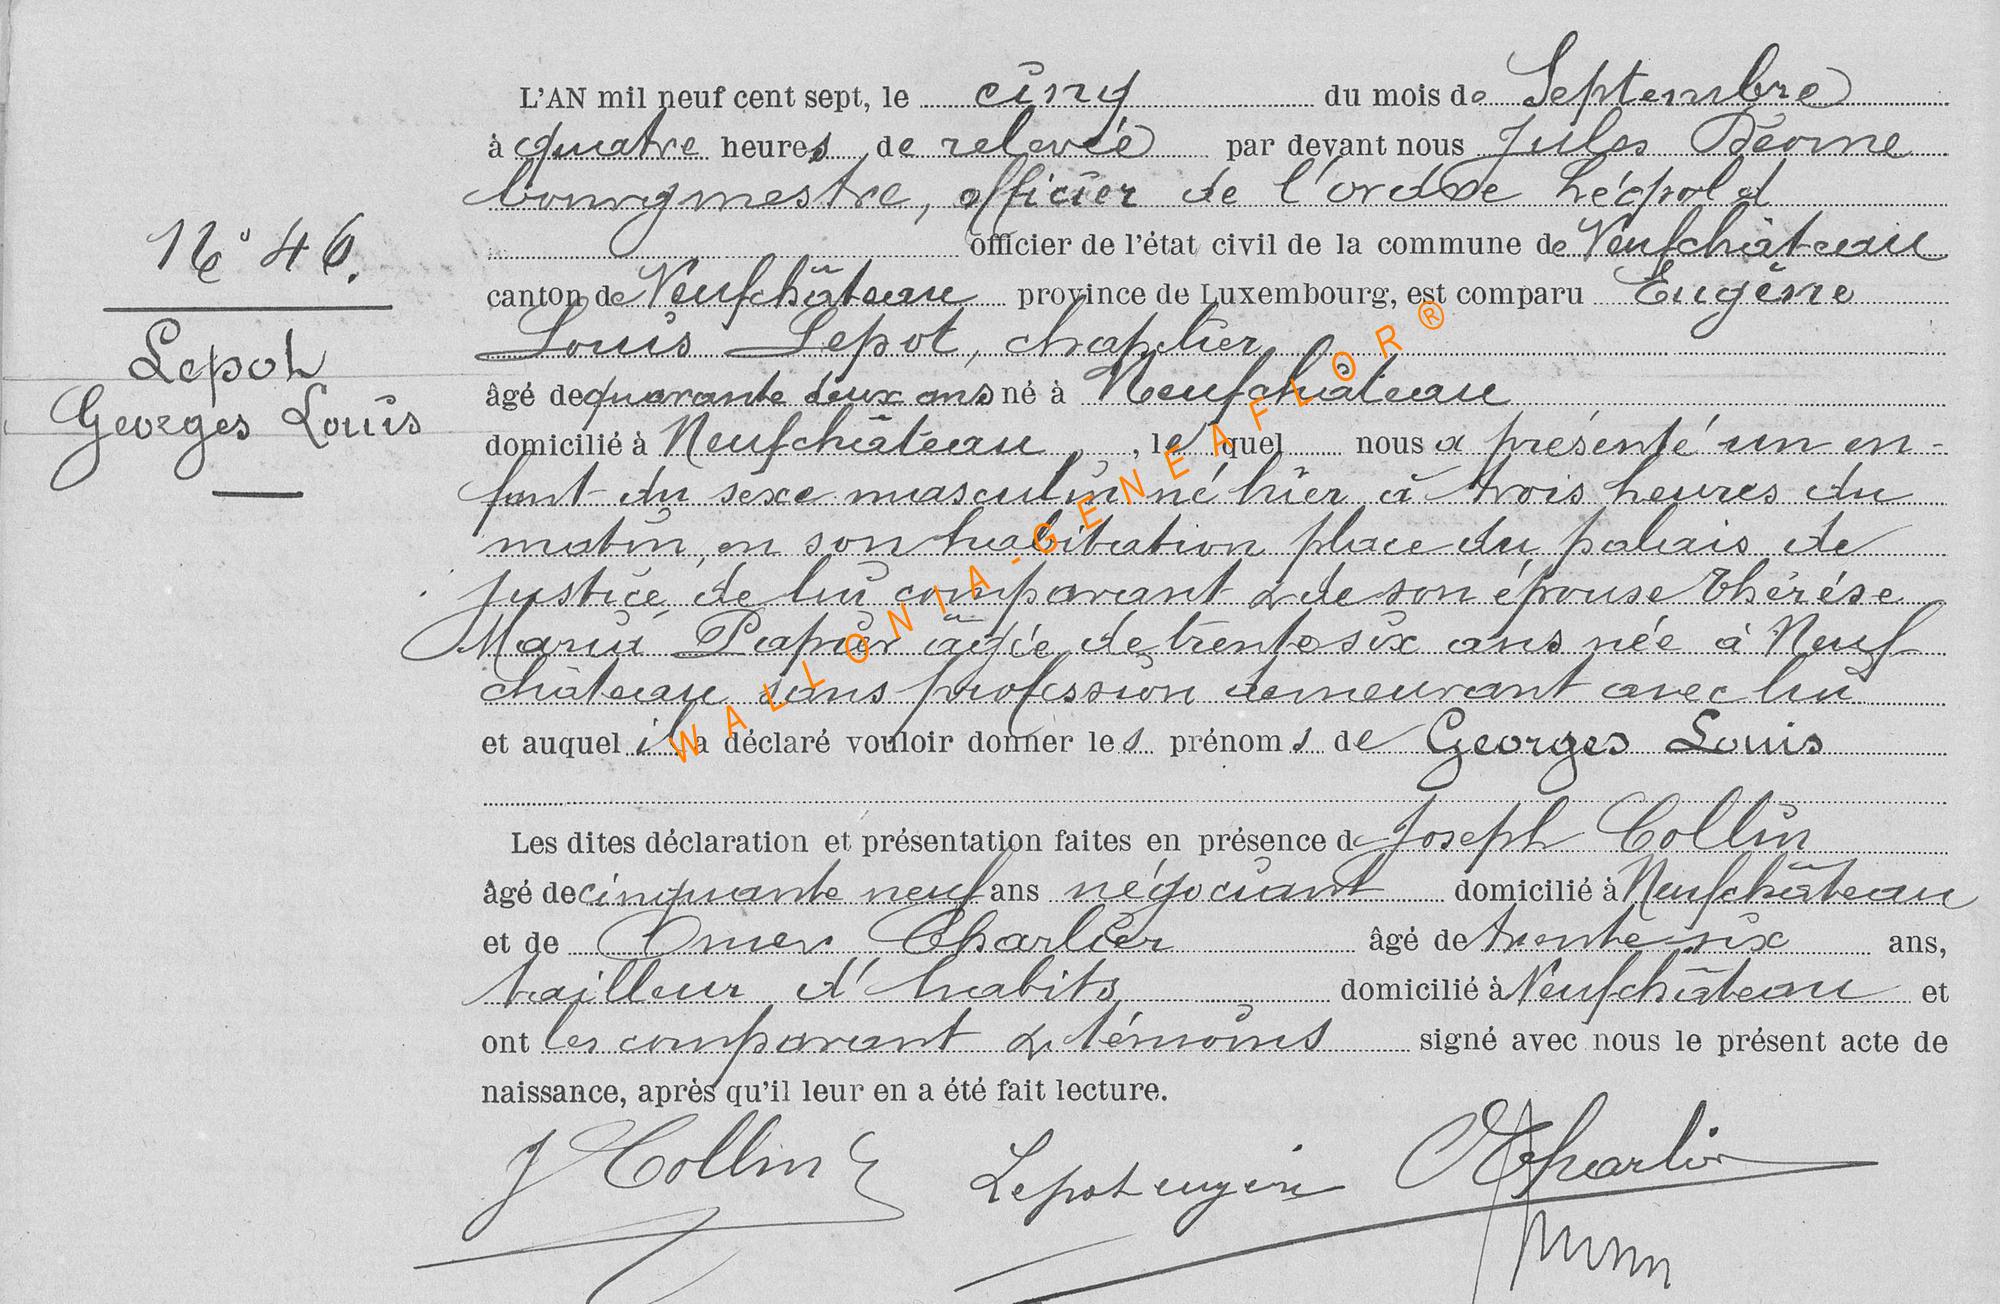 N° 46.
Lepot
Georges Louis
L'AN mil neuf cent sept, le cinq du mois de Septembre
à quatre heures de relevée par devant nous Jules
bourgmestre, officier de l'ordre Léopold
officier de l'état civil de la commune de Neufchâteau
canton de Neufchâteau province de Luxembourg, est comparu Eugène
Louis Lepot, chaptier
âgé de quarante deux ans né à Neufchâteau
domicilié à Neufchâteau, lequel nous a présenté un en-
fant du sexe masculin né hier à trois heures du
matin, en son habitation place du palais de
justice, de lui comparant & de son épouse Thérèse
Marie Papier âgée de trente six ans née à Neuf
château sans profession demeurant avec lui
et auquel il a déclaré vouloir donner les prénoms de Georges Louis
Les dites déclaration et présentation faites en présence de Joseph Collin
âgé de cinquante neuf ans négociant domicilié à Neufchâteau
et de Omer Charlier âgé de trente six ans,
tailleur d'habits domicilié à Neufchâteau et
ont les comparant & témoins signé avec nous le présent acte de
naissance, après qu'il leur en a été fait lecture.
J Collin Lepot eugène O Charlier
WALLONIA-GENEAFLOR®